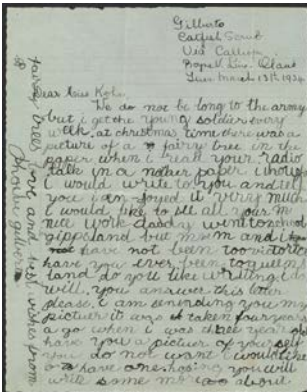 Gilberto
Catfish Scrub
Via Calliope
Boyne V. Line. Q'land
Tues March 13th 1934
Dear Miss Kohn
We do not be long to the army
but i get the young soldier every
week. at christmas time there was a
picture of a fairy tree in the
paper when i read your radio
talk in a nother paper i thought
i would write to you and tell
you i enjoyed it very much
i would like to see all your
nice work daddy went to school
gippsland but mum and i
have not been to victoria
have you ever been to queens
land do you like writing i do
will you answer this letter
please. i am senending you my
pictuer it was taken four years
a go when i was three years old
have you a pictuer of your self
you do not want i would like
to have one. hoping you will
write some more about
fairy trees love and best wishes from
gilbert